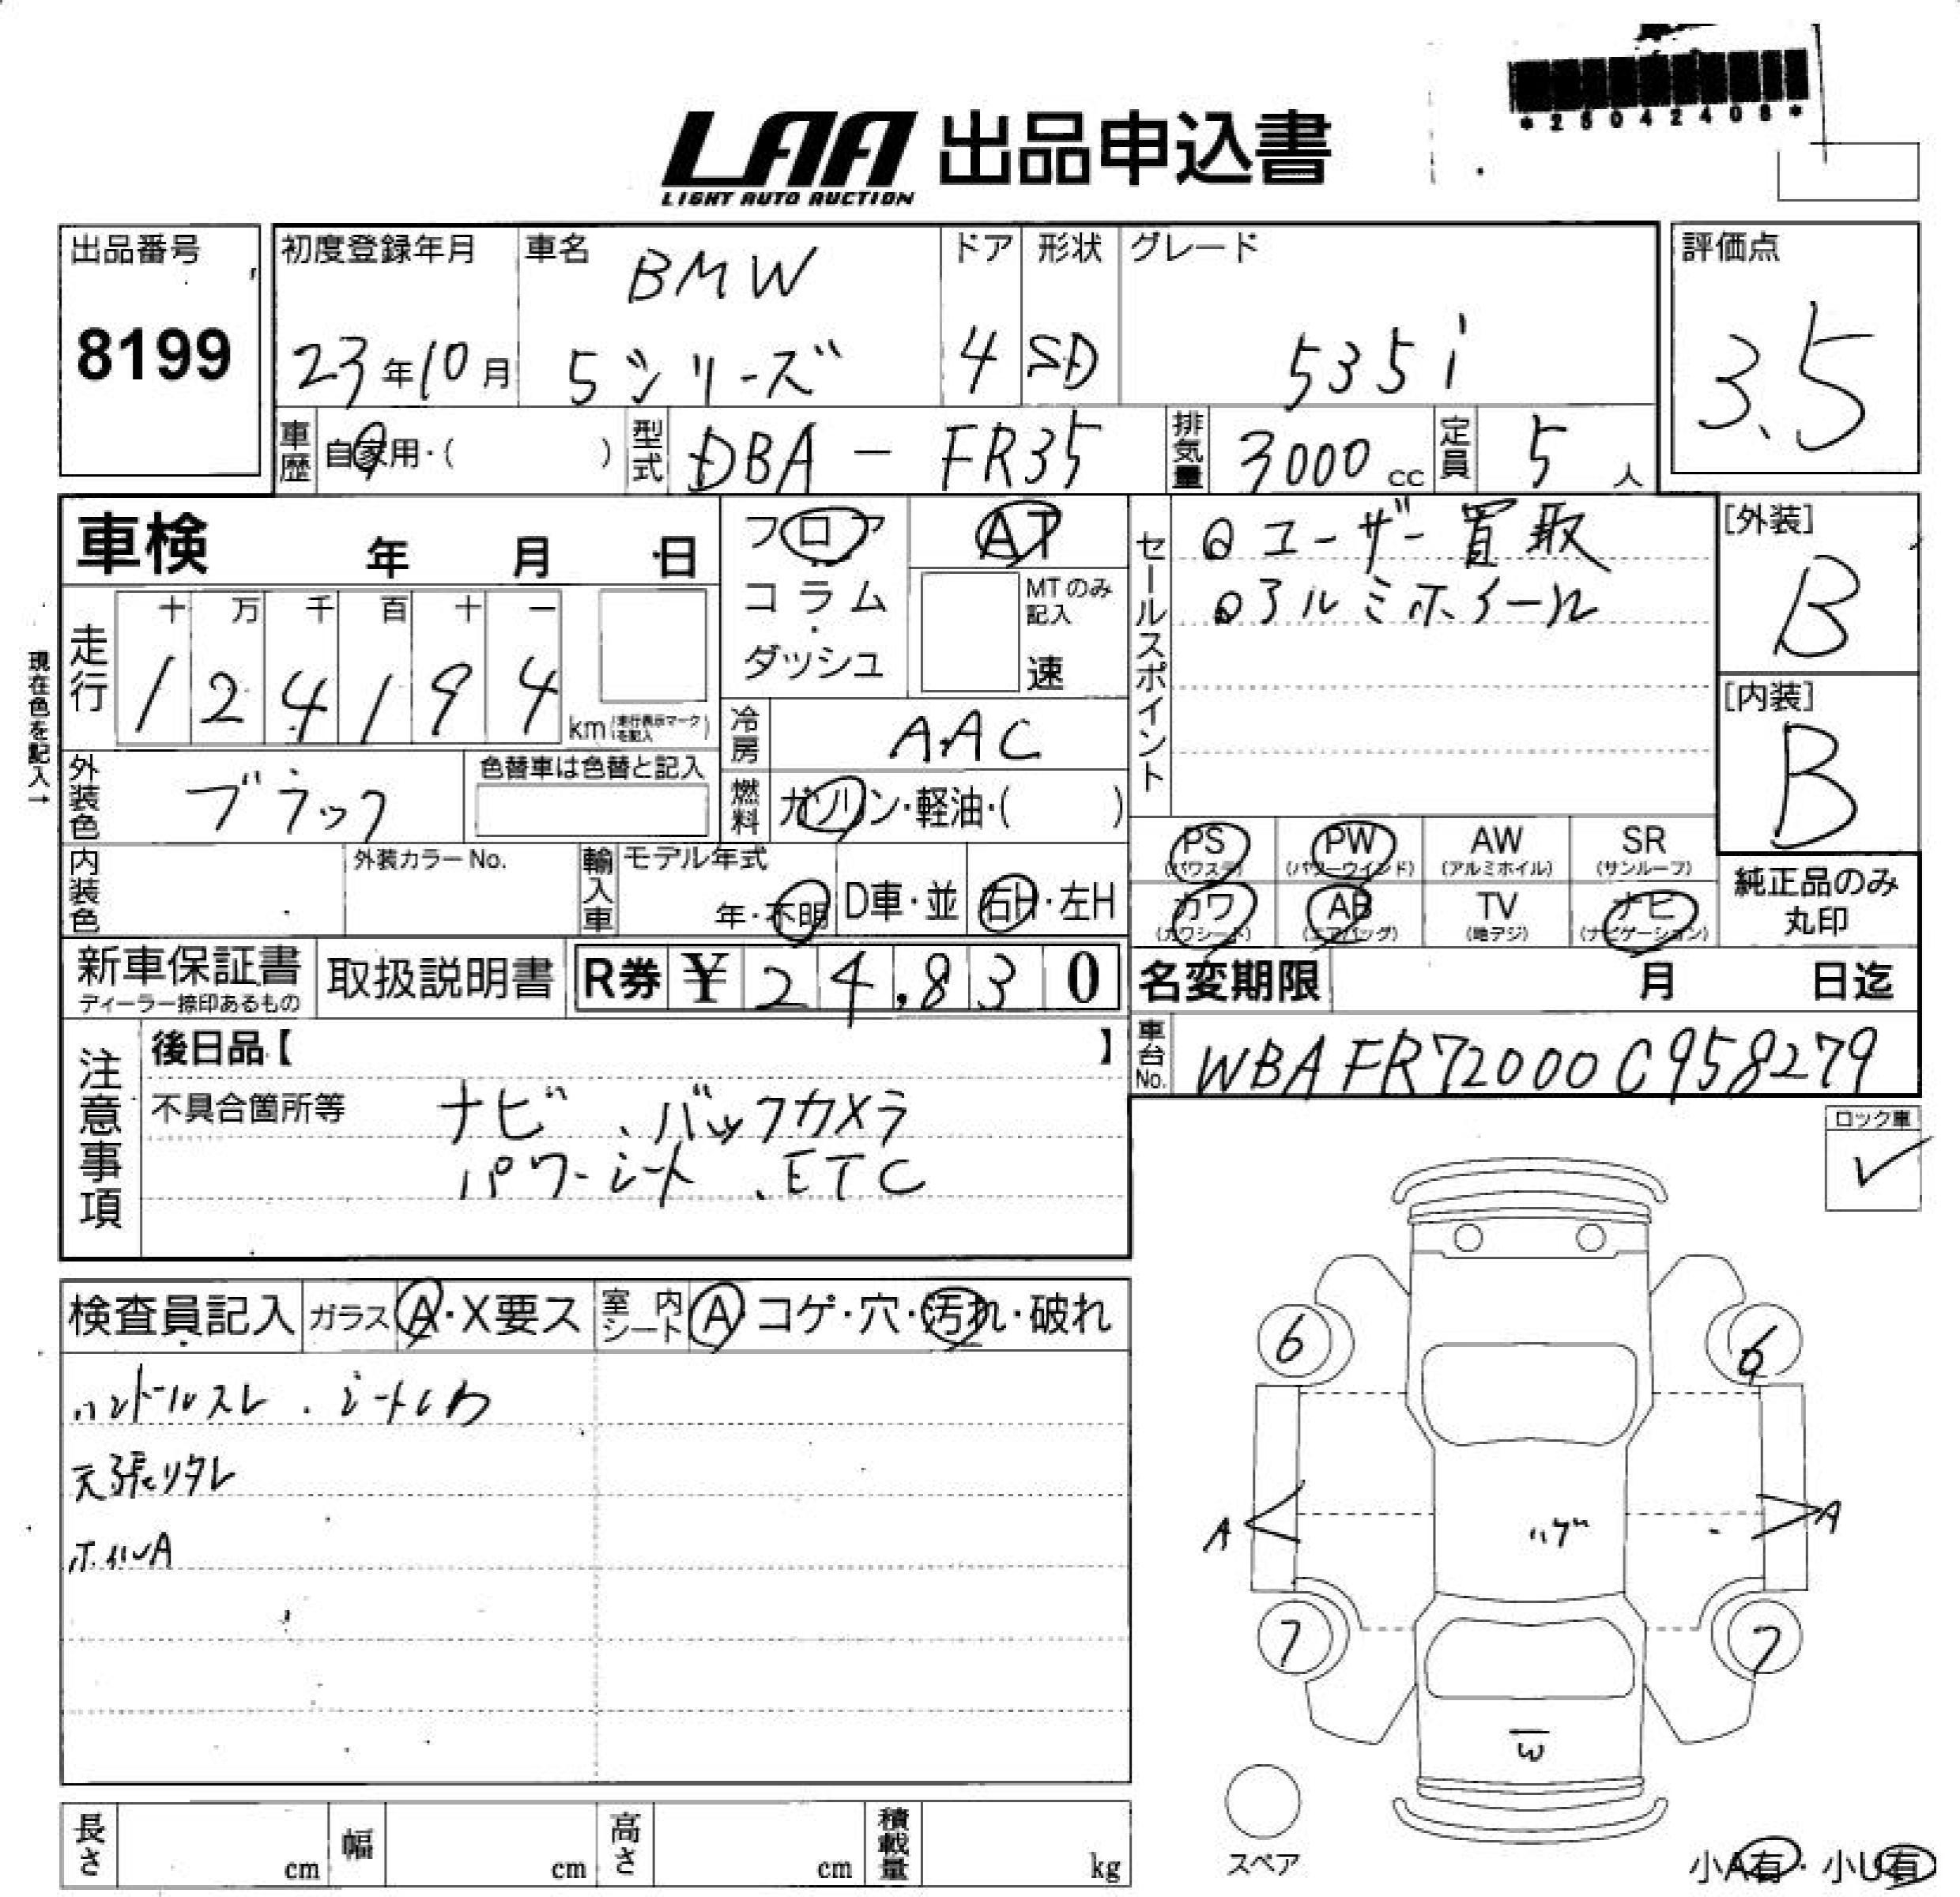 *25042408*
LAA 出品申込書
LIGHT AUTO AUCTION
出品番号
8199
初度登録年月
23年10月
車名
BMW
5シリーズ
ドア
4
形状
SD
グレード
535i
評価点
3.5
車歴
自家用・( )
型式
DBA - FR35
排気量
3000 cc
定員
5 人
車検 年 月 日
フロア
コラム
・
ダッシュ
AT
MTのみ
記入
速
セールスポイント
ユーザー買取
アルミホイール
[外装]
B
[内装]
B
現在色を記入→
走行
十 万 千 百 十 一
1 2 4 1 9 4
km(走行表示マークを記入)
冷房
AAC
外装色
ブラック
色替車は色替と記入
燃料
ガソリン・軽油・( )
内装色
外装カラーNo.
輸入車
モデル年式
年・不明
D車・並
右H・左H
PS
(パワステ)
PW
(パワーウインド)
AW
(アルミホイル)
SR
(サンルーフ)
カワ
(カワシート)
AB
(エアバッグ)
TV
(地デジ)
ナビ
(ナビゲーション)
純正品のみ
丸印
新車保証書
ディーラー捺印あるもの
取扱説明書
R券 ¥ 24,830
名変期限 月 日迄
車台No.
WBAFR72000C958279
注意事項
後日品【 】
不具合箇所等
ナビ、バックカメラ
パワーシート、ETC
ロック車
検査員記入
ガラス
A・X要ス
室内シート
A コゲ・穴・汚れ・破れ
ハンドルスレ . シートシワ
天張りタレ
ホイルA
6
6
A
ハゲ
A
7
7
W
スペア
長さ cm
幅 cm
高さ cm
積載量 kg
小A有・小U有